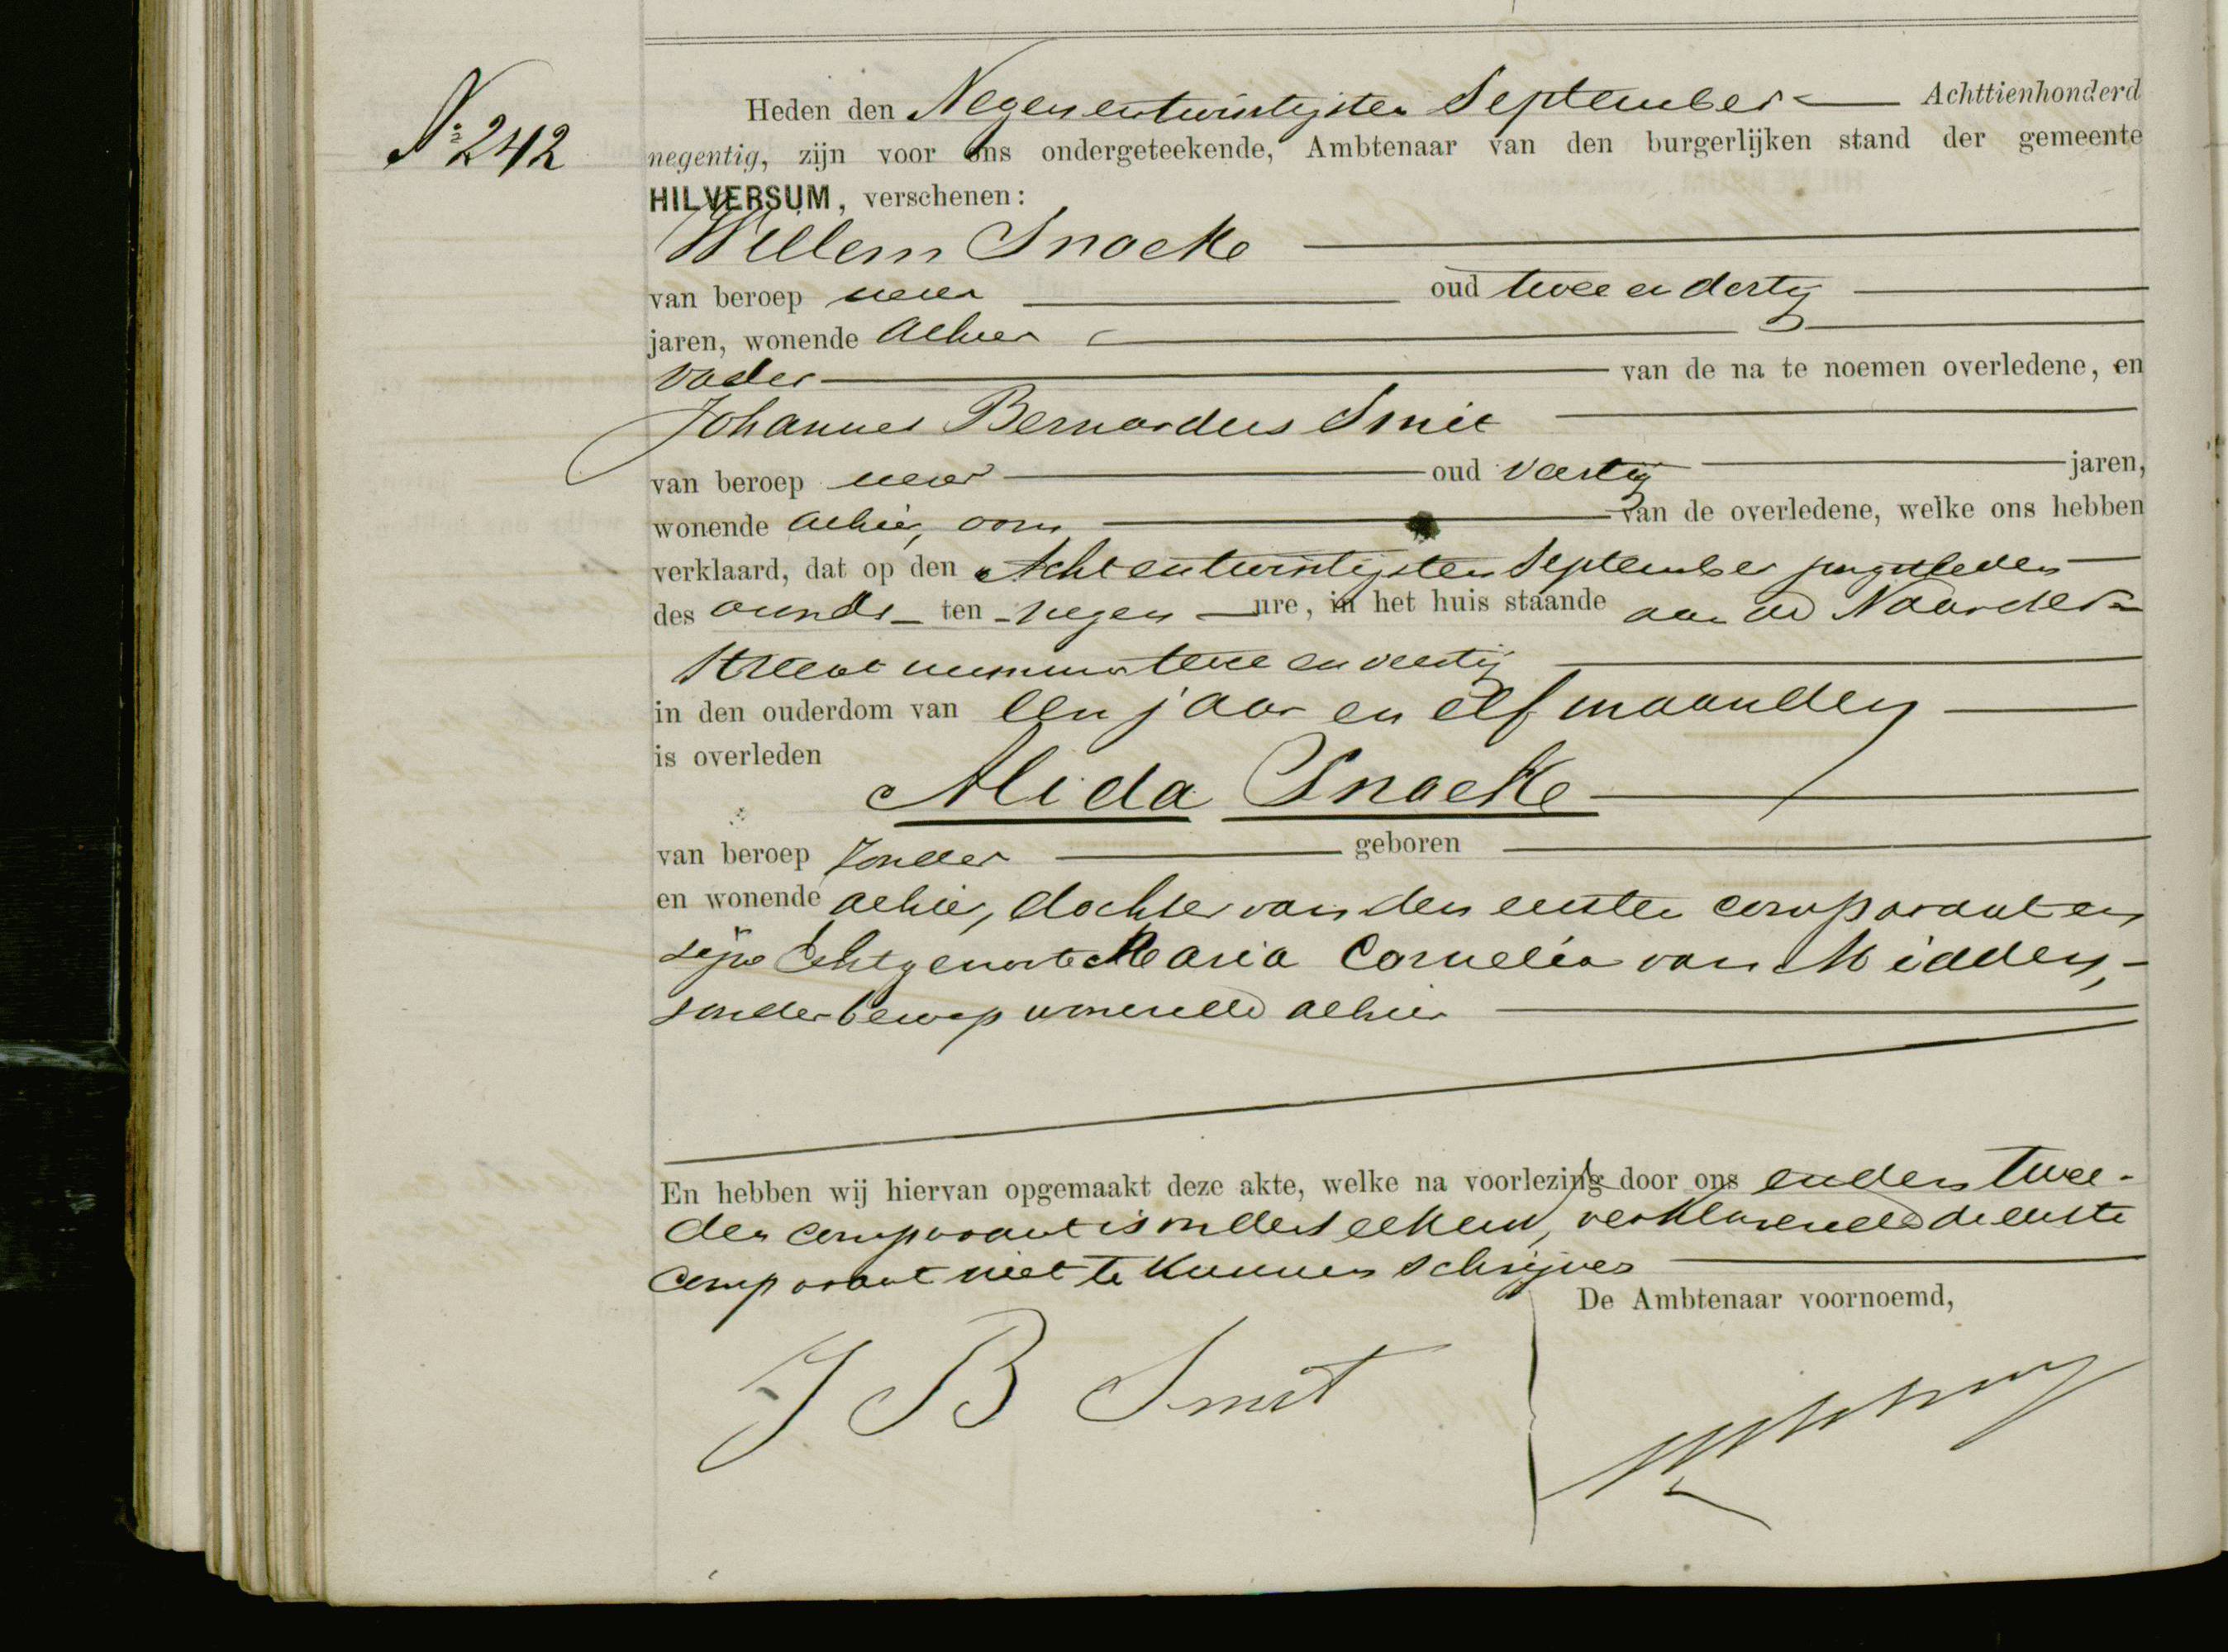 Nº 242
Heden den Negenentwintigsten September Achttienhonderd
negentig, zijn voor ons ondergeteekende, Ambtenaar van den burgerlijken stand der gemeente
HILVERSUM, verschenen:
Willem Snoeke
van beroep wever oud twee en dertig
jaren, wonende alhier
vader van de na te noemen overledene, en
Johannes Bernardus Smit
van beroep wever oud veertig jaren,
wonende alhier, oom van de overledene, welke ons hebben
verklaard, dat op den Achtentwintigsten September jongstleden
des avonds ten negen ure, in het huis staande aan de Naarder-
straat nummer twee en veertig
in den ouderdom van een jaar en elf maanden
is overleden
Alida Snoeke
van beroep zonder geboren
en wonende alhier, dochter van den eersten comparant en
zijne Echtgenoote Maria Cornelia van Midden,
zonder beroep wonende alhier
En hebben wij hiervan opgemaakt deze akte, welke na voorlezing door ons en den twee-
den comparant is onderteekend, verklarende de eerste
comparant niet te kunnen schrijven
De Ambtenaar voornoemd,
J B Smit